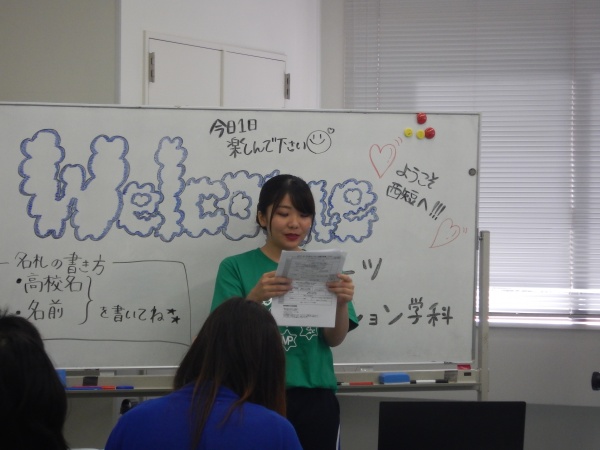 今日1日
楽しんで下さい
Welcome
ようこそ
西短へ!!!
名札の書き方
・高校名
・名前
を書いてね
ーツ
ション学科